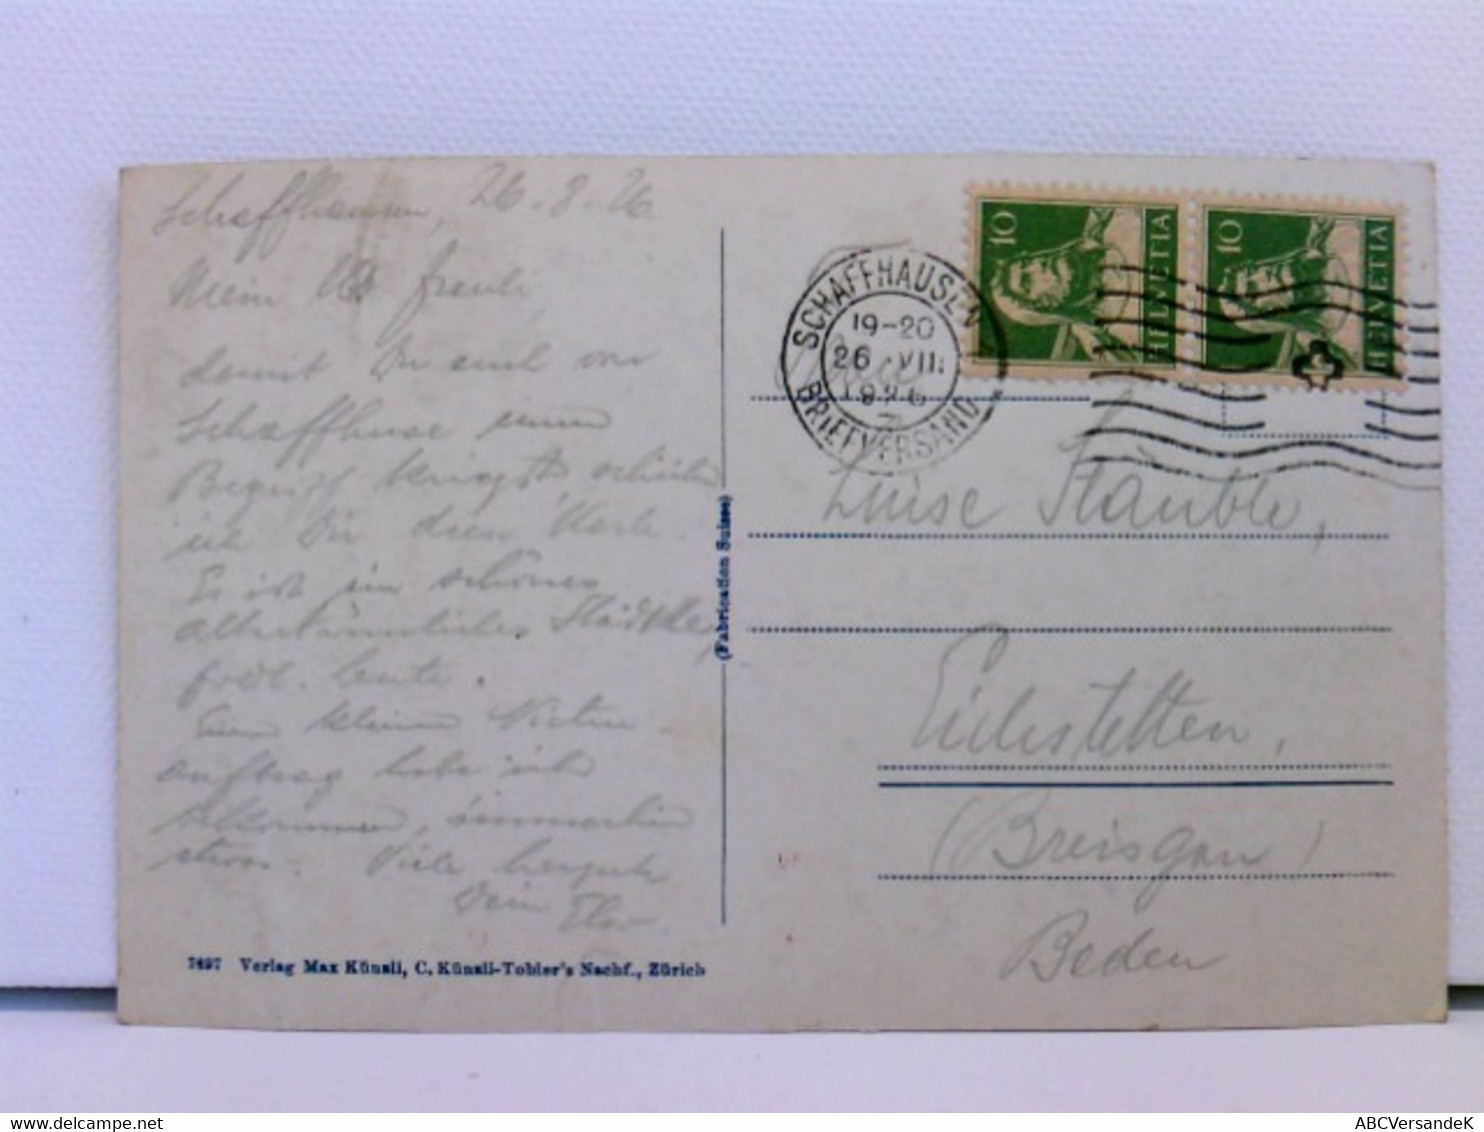 Schaffhausen, 26.8.26
Mein
damit Du auch von
Schaffhuse einen
Begriff kriegst, schicke
ich Dir diese Karte.
Es ist ein schönes
altertümliches Städtle,
frdl. Leute.
Einen kleinen
auftrag habe ich
bekommen, immerhin
etwas. Viele herzgute
Dein
7497 Verlag Max Künzli, C. Künzli-Tobler's Nachf., Zürich
(Fabrication Suisse)
SCHAFFHAUSEN 1
19-20
26 VIII
1926
BRIEFVERSAND
10 HELVETIA
10 HELVETIA
Luise Stäuble,
Eichstetten,
(Breisgau)
Baden
ABCVersandeK
delcampe.net